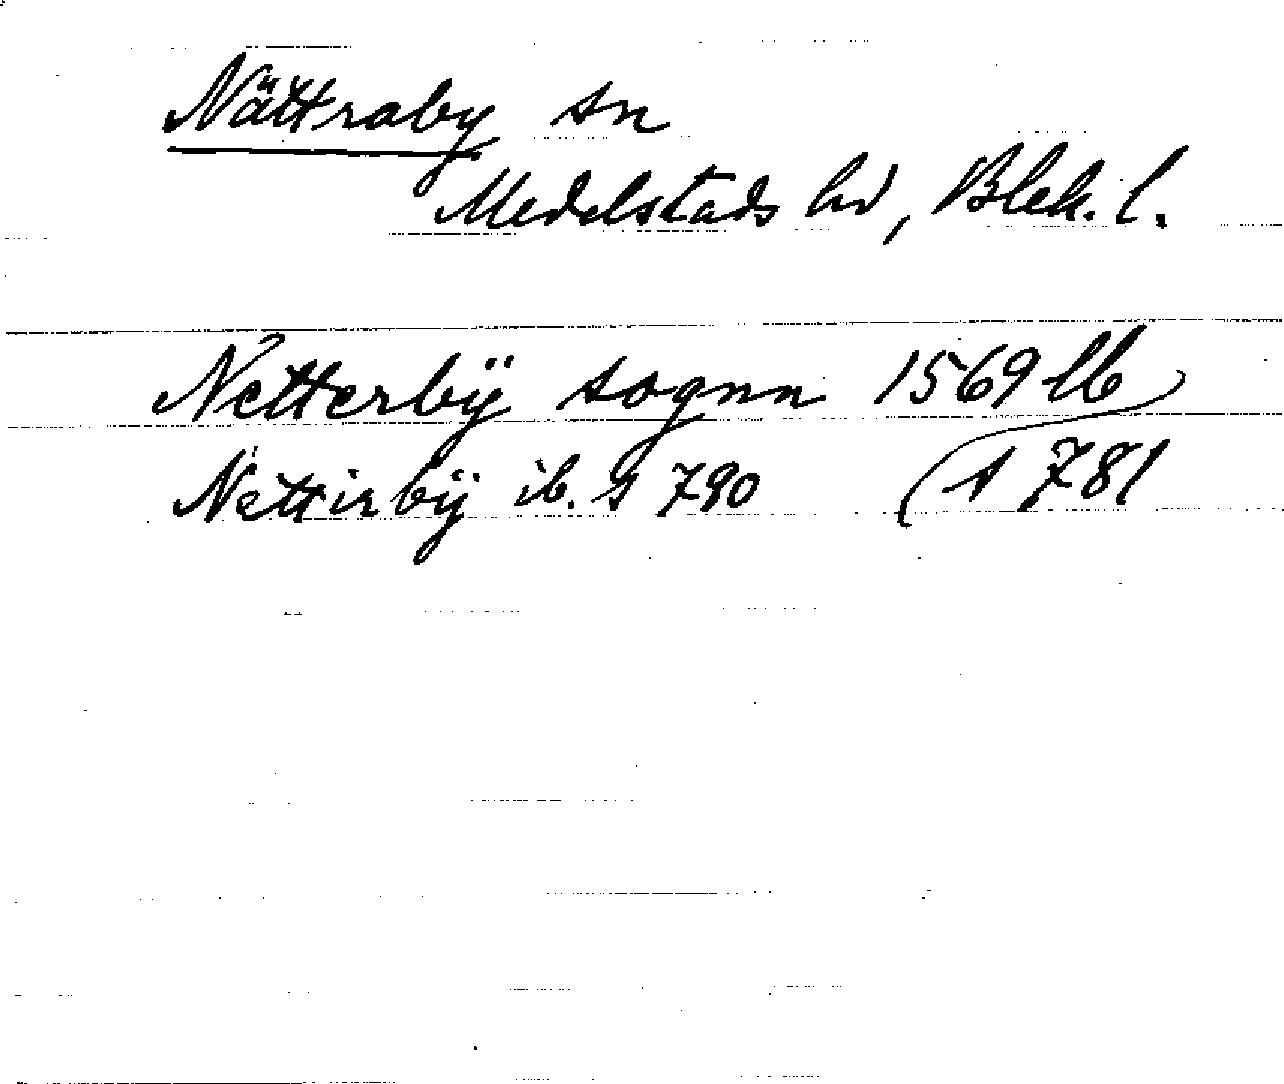 Nättraby sn
Medelstads hd, Blek. l.
Netterbÿ sognn 1569 lb
Nettirbÿ ib. s 790 (s 781